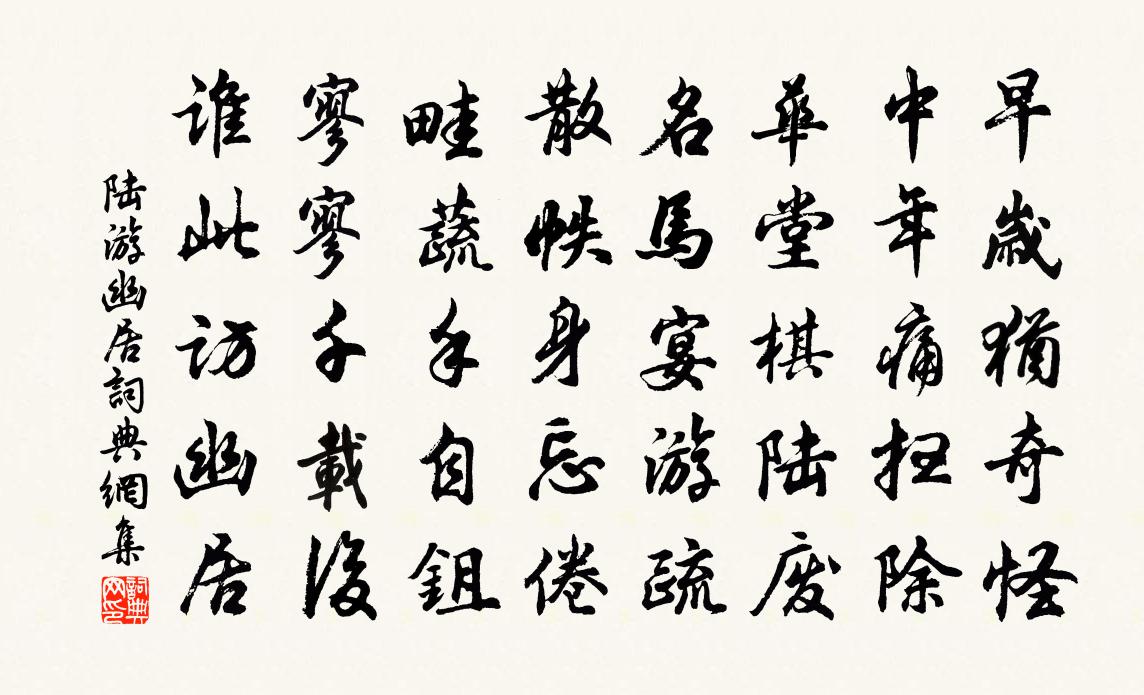 早歲犹奇怪
中年痛扫除
華堂棋陆废
名馬宴游疏
散帙身忘倦
畦蔬手自鉏
寥寥千載後
谁此访幽居
陆游幽居詞典網集
詞典网印